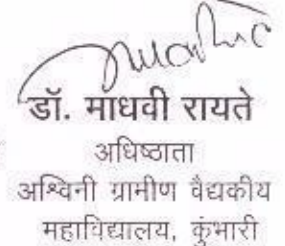 डॉ. माधवी रायते
अधिष्ठाता
अश्विनी ग्रामीण वैद्यकीय
महाविद्यालय, कुंभारी